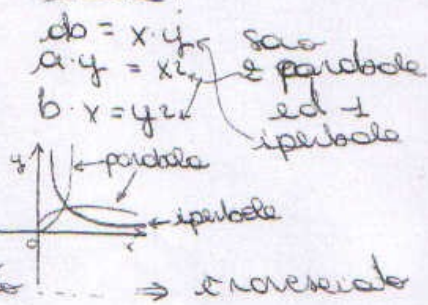 ab = x·y
sono
a·y = x²
2 parabole
b·x = y²
ed 1
iperbole
y
parabola
iperbole
o
x
⇒